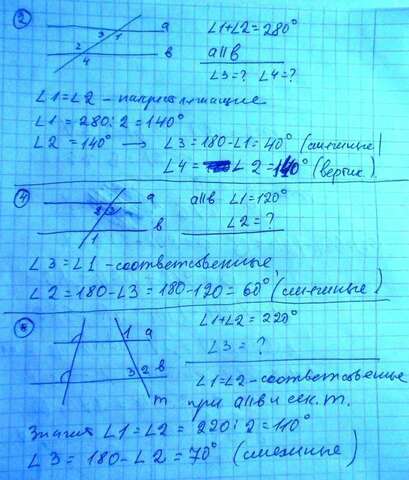 ② 3 1 a ∠1+∠2=280°
2 4 в a||в
∠3=? ∠4=?
∠1=∠2 - накрестлежащие
∠1 = 280:2 = 140°
∠2 = 140° → ∠3=180-∠1=40° (смежные)
∠4= ∠2=140° (вертик.)
④ 2 3 a a||в ∠1=120°
1 в ∠2=?
∠3=∠1 - соответственные
∠2=180-∠3=180-120=60° (смежные)
1 a ∠1+∠2=220°
3 2 в ∠3=?
m ∠1=∠2 - соответственные
при a||в и сек. m.
Значит ∠1=∠2=220:2=110°
∠3=180-∠2=70° (смежные)